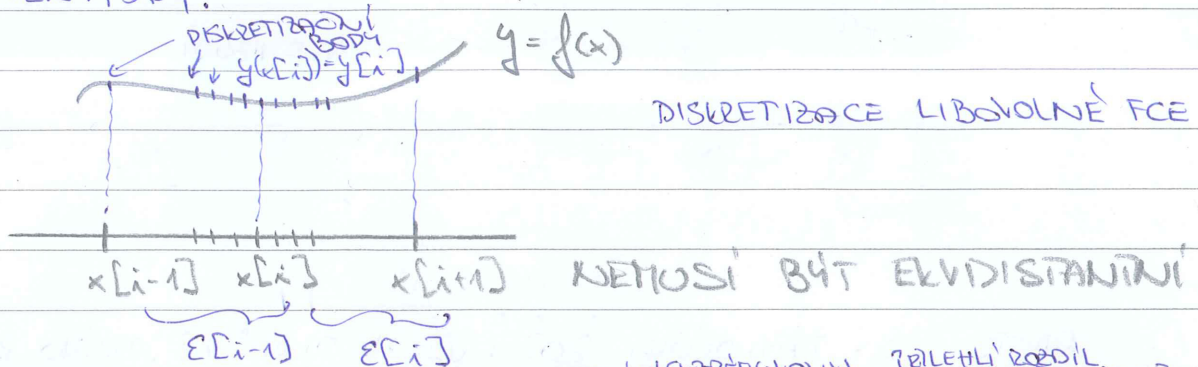 DISKRETIZAČNÍ
BODY
y(x[i])=y[i]
y=f(x)
DISKRETIZACE LIBOVOLNÉ FCE
x[i-1] x[i] x[i+1] NEMUSÍ BÝT EKVIDISTANTNÍ
ε[i-1] ε[i]